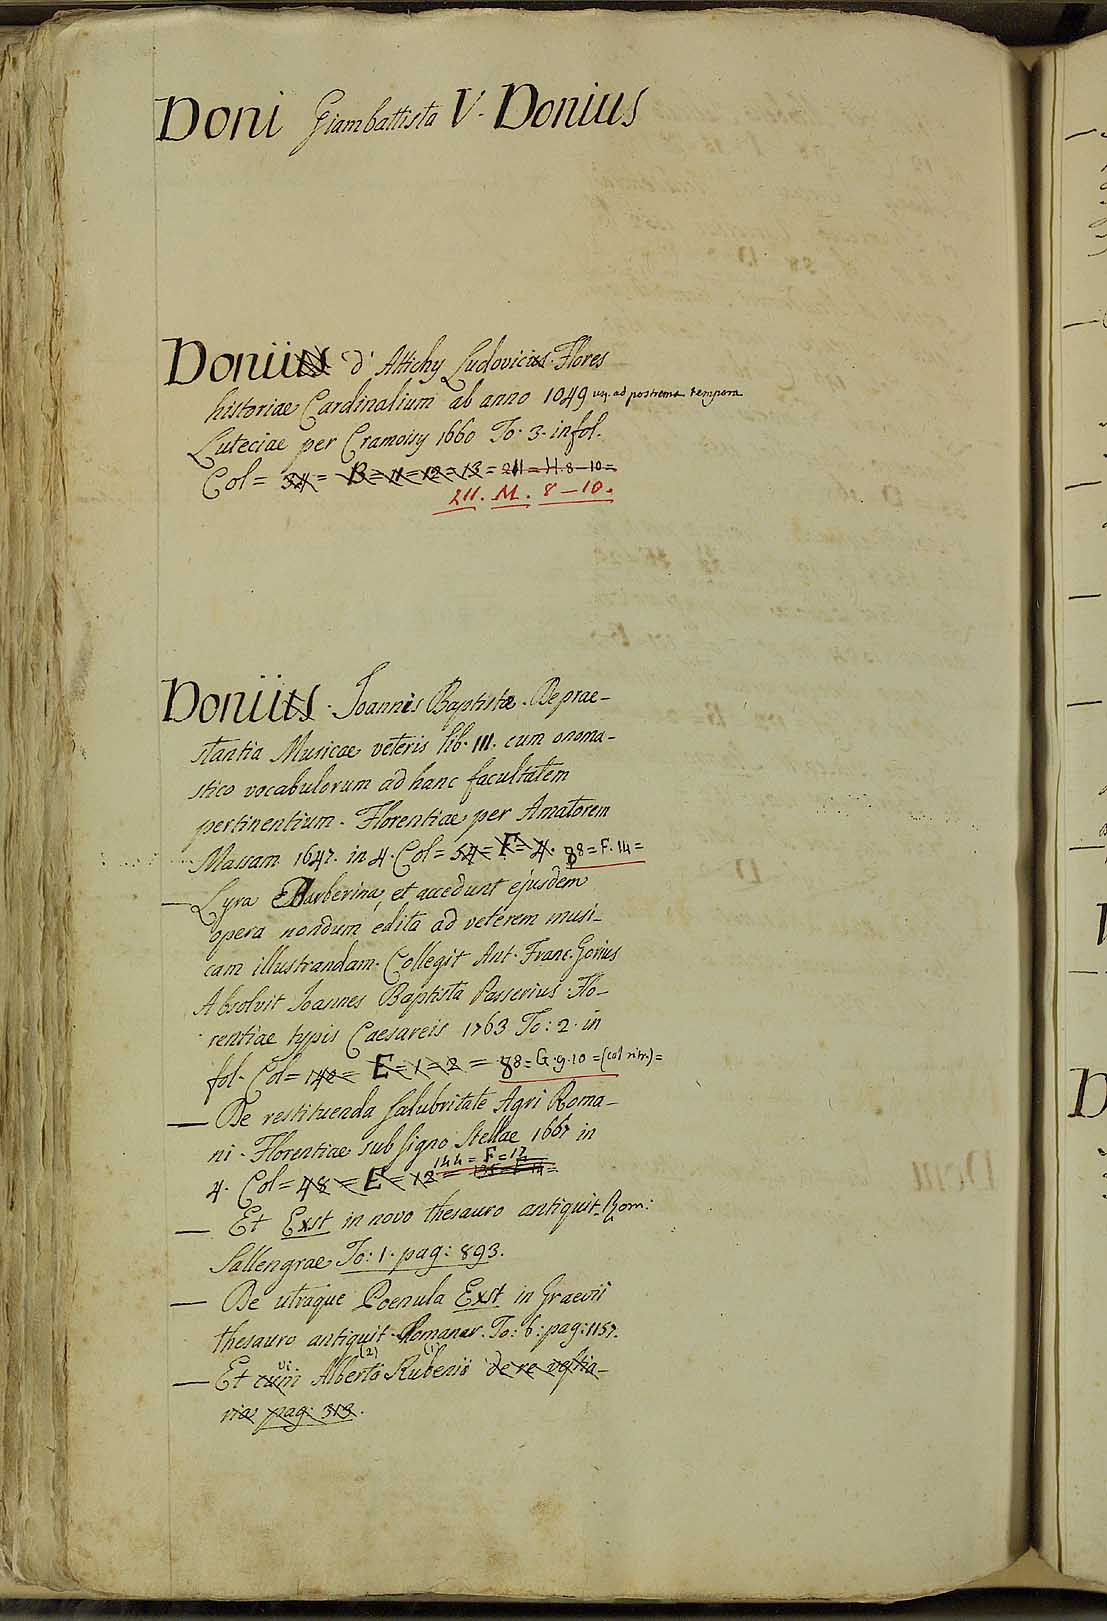 Doni Giambattista V. Donius
Donius d' Attichy Ludovicus. Flores
historiae Cardinalium ab anno 1049 usq. ad postrema tempora
Luteciae per Cramoisy 1660 To. 3. in fol.
Col= 34= B=11=12=13= 211=M.8-10=
211. M. 8-10.
Donius. Joannis Baptistae. De prae-
stantia Musicae veteris lib. III. cum onoma-
stico vocabulorum ad hanc facultatem
pertinentium. Florentiae per Amatorem
Massam 1647. in 4. Col= 54= F= 4. 98=F.14=
— Lyra Barberina, et accedunt ejusdem
opera nondum edita ad veterem musi-
cam illustrandam. Collegit Ant. Franc. Gorius
Absolvit Joannes Baptista Passerius. Flo-
rentiae typis Caesareis 1763 To: 2. in
fol. Col= 142= E=1=2 = 88=G.9.10=(col ritr.)=
— De restituenda salubritate Agri Roma-
ni. Florentiae sub signo Stellae 1667 in
144=F=17
4. Col= 48= E=12=
— Et Exst in novo thesauro antiquit. Rom:
Sallengrae To: 1. pag: 893.
— De utraque Poenula Exst in Graevii
thesauro antiquit. Romanar. To: 6: pag: 1157.
(2) (1)
— Et cum Alberto Rubenii de re vestia-
ria pag: 313.
Doni